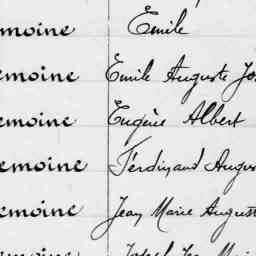 emoine Emile
emoine Emile Auguste Jos
emoine Eugène Albert
emoine Ferdinand August
emoine Jean Marie August
emoine Joseph